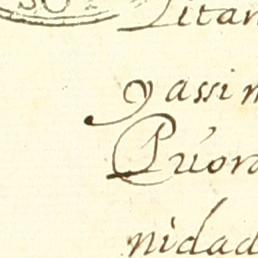 Litan
y assi n
Puora
nidad